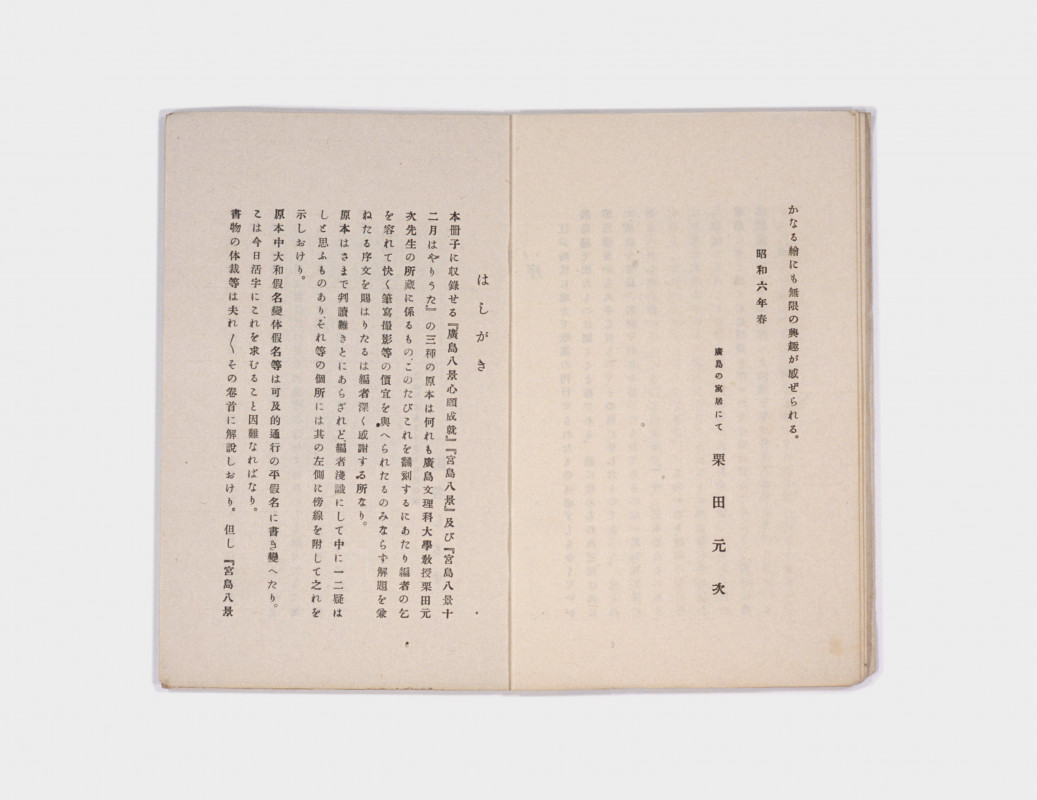 かなる繪にも無限の興趣が感ぜられる。
昭和六年春
廣島の寓居にて 栗田元次
はしがき
本冊子に収錄せる『廣島八景心願成就』『宮島八景』及び『宮島八景十
二月はやりうた』の三種の原本は何れも廣島文理科大學敎授栗田元
次先生の所藏に係るもの、このたびこれを飜刻するにあたり編者の乞
を容れて快く筆寫撮影等の便宜を與へられたるのみならず解題を兼
ねたる序文を賜はりたるは編者深く感謝する所なり。
原本はさまで判讀難きとにあらざれど、編者淺識にして中に一二疑は
しと思ふものあり、それ等の個所には其の左側に傍線を附して之れを
示しおけり。
原本中大和假名變体假名等は可及的通行の平假名に書き變へたり。
こは今日活字にこれを求むること困難なればなり。
書物の体裁等は夫れ〱その卷首に解說しおけり。但し『宮島八景